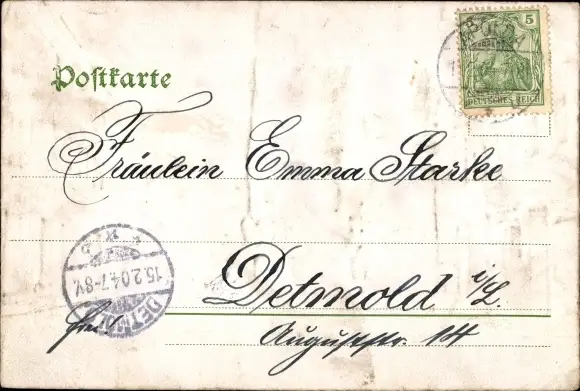 5
DEUTSCHES REICH
Postkarte
Fräulein Emma Starke
Detmold i/L.
frei!
Auguststr. 14
15.2.04.7-8V.
DETMOLD